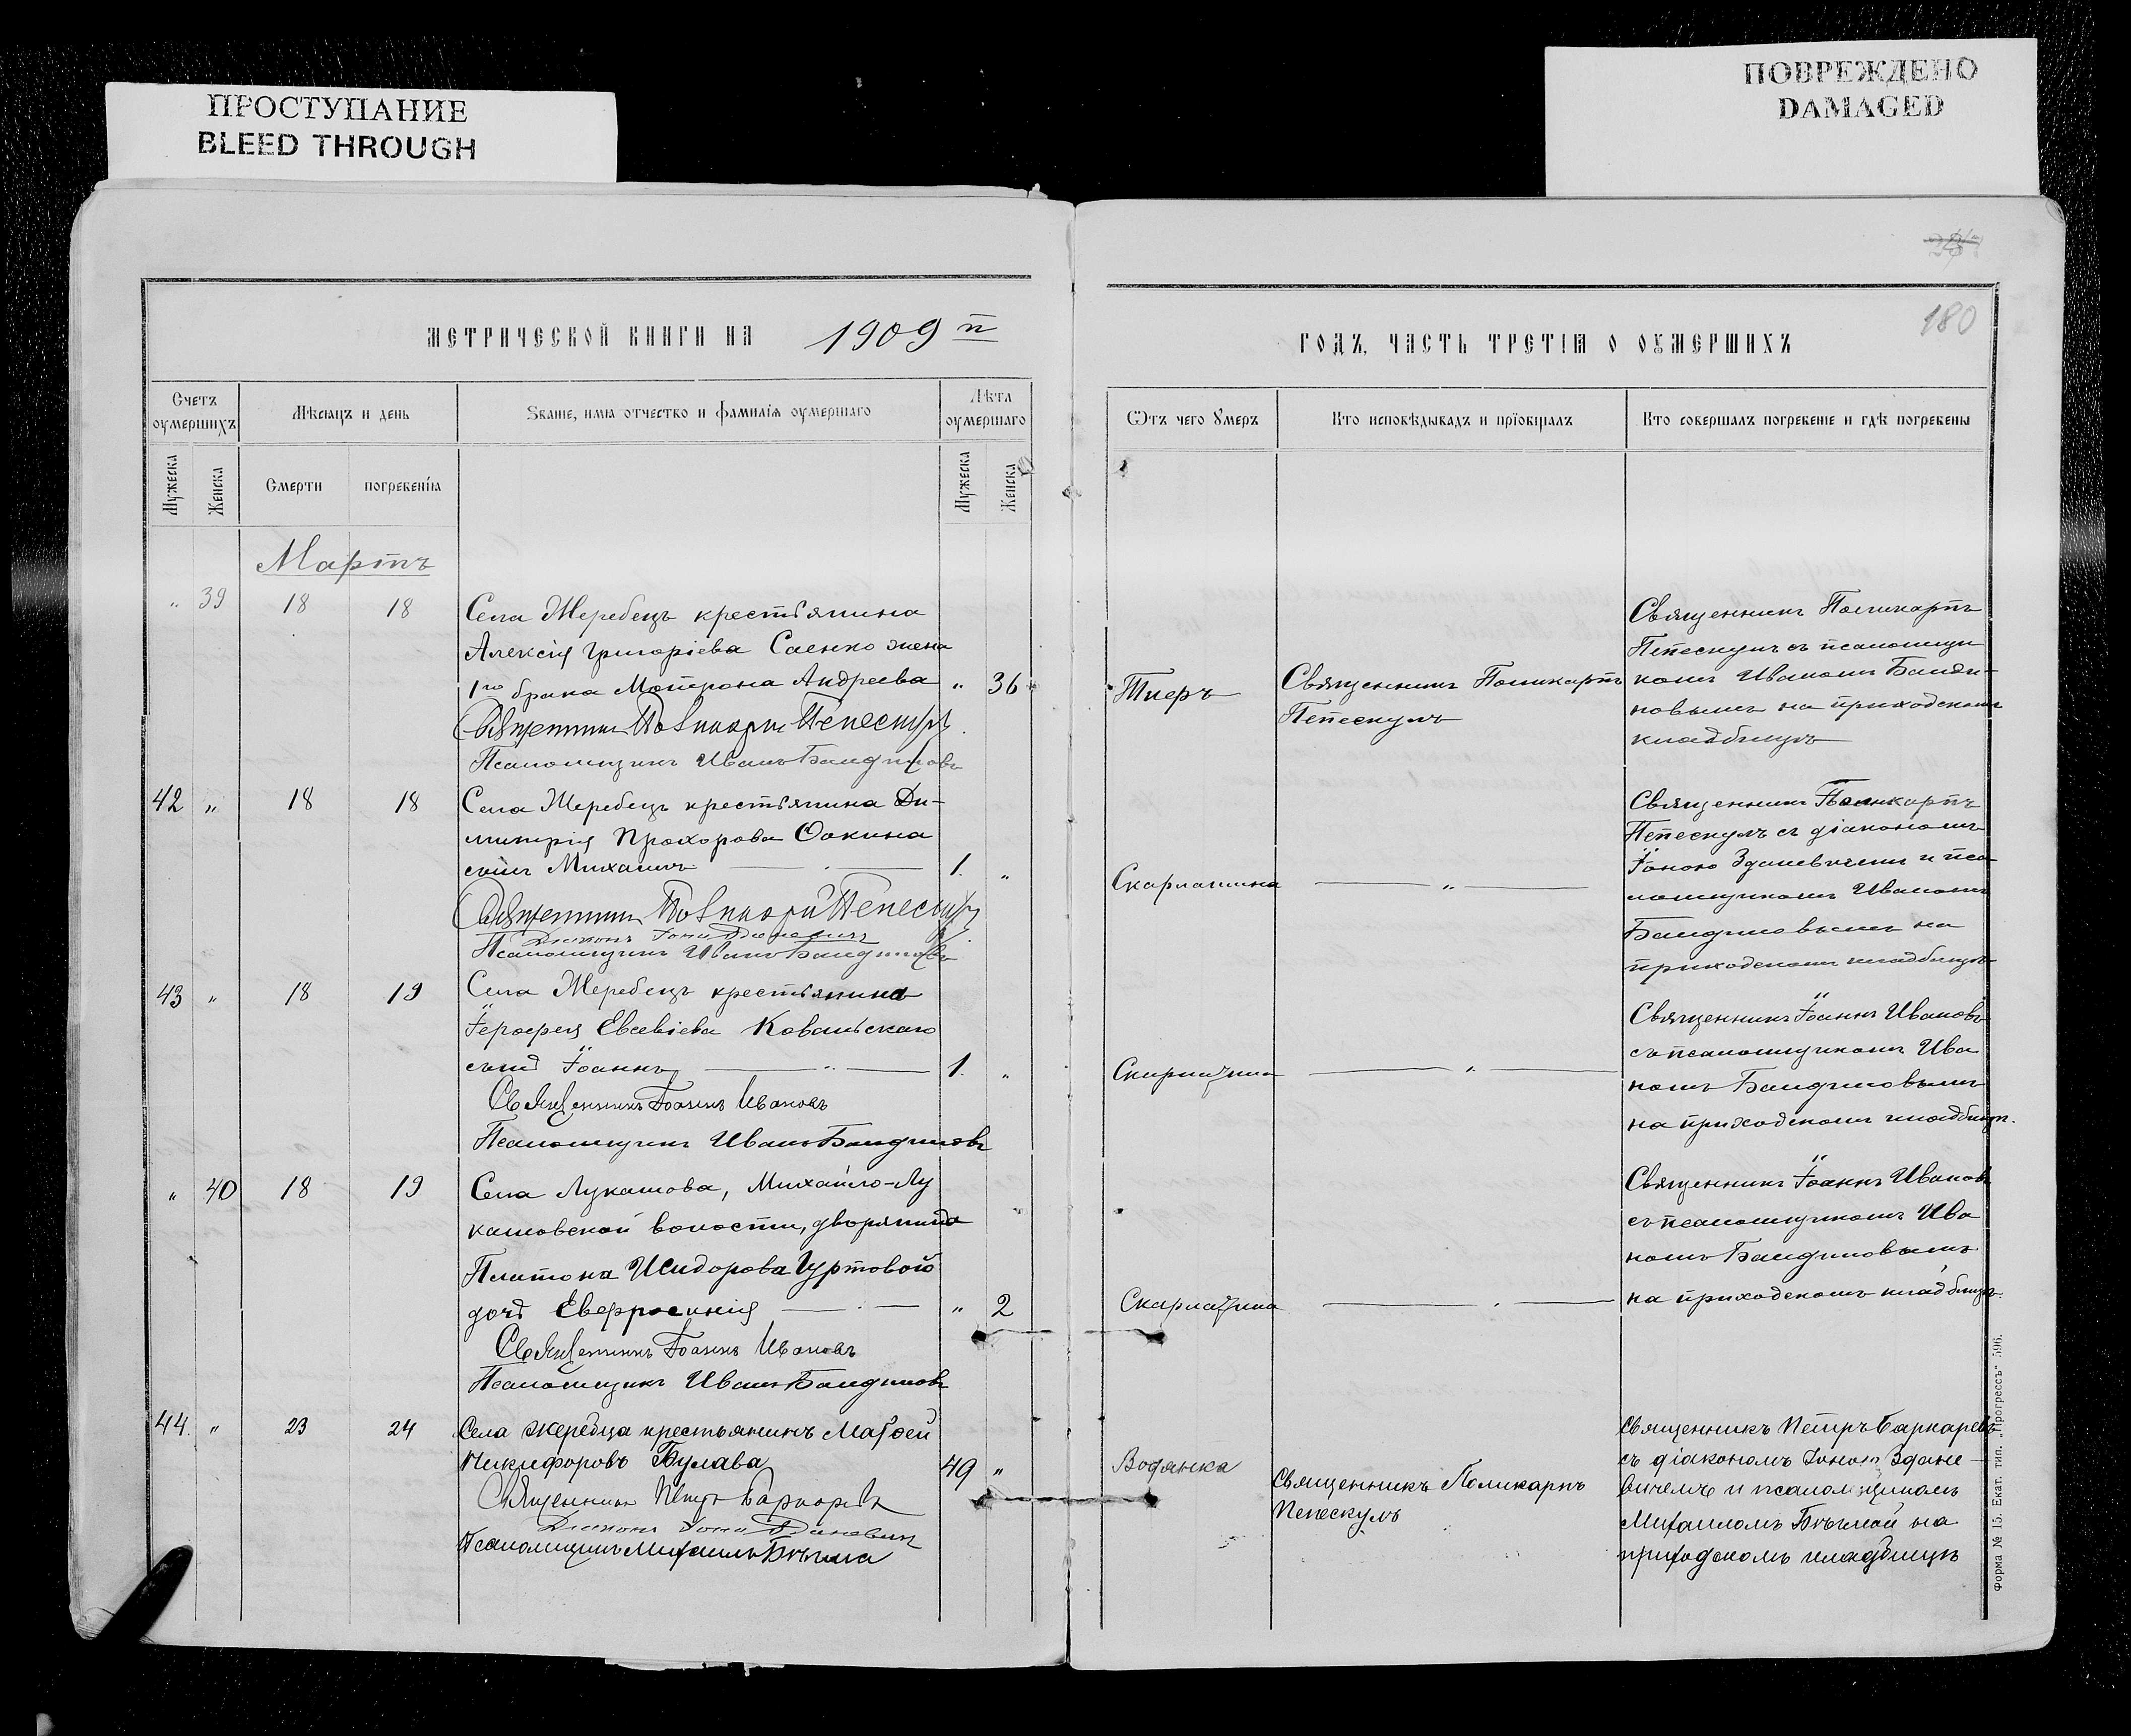 ПРОСТУПАНИЕ
BLEED THROUGH
ПОВРЕЖДЕНО
DAMAGED
180
МЕТРИЧЕСКОЙ КНИГИ НА 1909й
ГОДЪ, ЧАСТЬ ТРЕТІЯ О ОУМЕРШИХЪ
Счетъ оумершихъ
Мѣсяцъ и день
Званіе, имя отчество и фамилія оумершаго
Лѣта оумершаго
Ѿтъ чего Умеръ
Кто исповѣдывалъ и пріобщалъ
Кто совершалъ погребеніе и гдѣ погребены
Мужеска
Женска
Смерти
погребенія
Мужеска
Женска
Мартъ
„ 39 18 18
Села Жеребецъ крестьянина
Алексія Григоріева Саенко жена
1го брака Матрона Андреева „ 36
Священникъ Поликарпъ Пепескулъ
Псаломщикъ Иванъ Бандиловъ
Тиеръ
Священникъ Поликарпъ
Пепескулъ
Священникъ Поликарпъ
Пепескулъ съ псаломщи-
комъ Иваномъ Банди-
ловымъ на приходскомъ
кладбищѣ
42 „ 18 18
Села Жеребецъ крестьянина Ди-
митрія Прохорова
сынъ Михаилъ 1. „
Священникъ Поликарпъ Пепескулъ
Діаконъ Іона Зданевичъ
Псаломщикъ Иванъ Бандиловъ
Скарлатина „
Священникъ Поликарпъ
Пепескулъ съ діакономъ
Іоною Зданевичемъ и пса-
ломщикомъ Иваномъ
Бандиловымъ на
приходскомъ кладбищѣ
43 „ 18 19
Села Жеребецъ крестьянина
Іерофея Евсевіева Ковальскаго
сынъ Іоаннъ 1. „
Священникъ Іоаннъ Ивановъ
Псаломщикъ Иванъ Бандиловъ
Скарлатина „
Священникъ Іоаннъ Ивановъ
съ псаломщикомъ Ива
номъ Бандиловымъ
на приходскомъ кладбищѣ.
„ 40 18 19
Села Лукашова, Михайло-Лу
кашовской волости, дворянина
Платона Исидорова Гуртовой
дочь Евфросинія „ 2
Священникъ Іоаннъ Ивановъ
Псаломщикъ Иванъ Бандиловъ
Скарлатина „
Священникъ Іоаннъ Ивановъ
съ псаломщикомъ Ива
номъ Бандиловымъ
на приходскомъ кладбищѣ.
44. „ 23 24
Села Жеребца крестьянинъ Матѳей
Никифоровъ Булава 49 „
Священникъ Петръ Баркаревъ
Діаконъ Іона Зданевичъ
Псаломщикъ Михаилъ
Водянка
Священникъ Поликарпъ
Пепескулъ
Священникъ Петръ Баркаревъ
съ діакономъ Іоною Здане-
вичемъ и псаломщикомъ
Михаиломъ на
приходскомъ кладбищѣ
Форма № 15. Екат. тип. „Прогрессъ" 596.